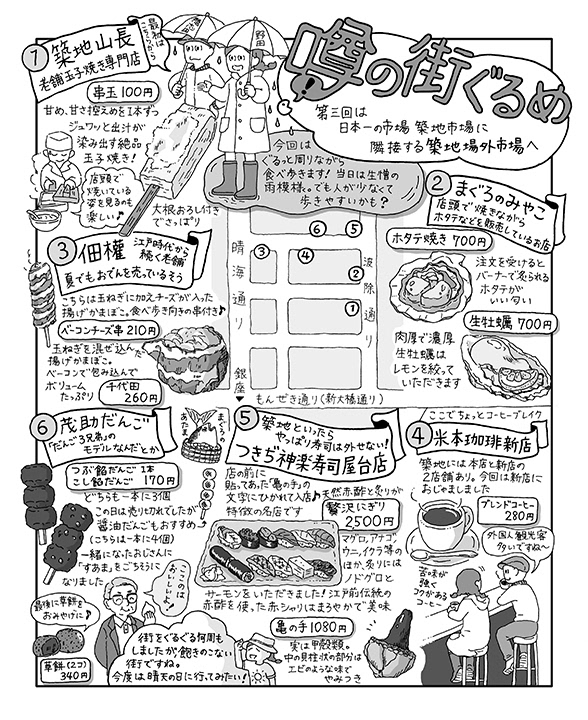 噂の街ぐるめ
第三回は
日本一の市場 築地市場に
隣接する築地場外市場へ
最初は
こちらから
野田
今回は
ぐるっと周りながら
食べ歩きます！当日は生憎の
雨模様。でも人が少なくて
歩きやすいかも？
① 築地山長
老舗玉子焼き専門店
串玉 100円
甘め、甘さ控えめを1本ずつ
ジュワッと出汁が
染み出す絶品
玉子焼き！
店頭で
焼いている
姿を見るのも
楽しい♪
大根おろし付き
でさっぱり
② まぐろのみやこ
店頭で焼きながら
ホタテなどを販売しているお店
ホタテ焼き 700円
注文を受けると
バーナーで炙られる
ホタテが
いい匂い
生牡蠣 700円
肉厚で濃厚
生牡蠣は
レモンを絞って
いただきます
③ 佃權
江戸時代から
続く老舗
夏でもおでんを売っているそう
こちらは玉ねぎに加えチーズが入った
揚げかまぼこ。食べ歩き向きの串付き♪
ベーコンチーズ串 210円
玉ねぎを混ぜ込んだ
揚げかまぼこ。
ベーコンで包み込んで
ボリューム
たっぷり
千代田
260円
⑥
⑤
③
④
②
①
晴海通り
波除通り
銀座
▼
もんぜき通り（新大橋通り）
ここでちょっとコーヒーブレイク
④ 米本珈琲新店
築地には本店と新店の
2店舗あり。今回は新店に
おじゃましました
ブレンドコーヒー
280円
外国人観光客
多いですね〜
苦味が
強く
コクがある
コーヒー
⑤ 築地といったら
やっぱり寿司は外せない！
つきぢ神楽寿司屋台店
まぐろの
あたま
店の前に
貼ってあった「亀の手」の
文字にひかれて入店♪
特徴の名店です
天然赤酢と炙りが
贅沢にぎり
2500円
マグロ、アナゴ、
ウニ、イクラ等の
ほか、炙りには
ノドグロと
サーモンをいただきました！江戸前伝統の
赤酢を使った赤シャリはまろやかで美味
亀の手1080円
実は甲殻類。
中の貝柱状の部分は
エビのような味で
やみつき
⑥ 茂助だんご
「だんご3兄弟」の
モデルなんだとか
つぶ餡だんご 1本
こし餡だんご 170円
どちらも一本に3個
この日は売り切れでしたが
醤油だんごもおすすめ
（こちらは一本に4個）
一緒になったおじさんに
「すあま」をごちそうに
なりました
ここのは
おいしいよ〜
最後に草餅を
おみやげに♪
草餅（2コ）
340円
街をぐるぐる何周も
しましたが飽きのこない
街ですね。
今度は晴天の日に行ってみたい！